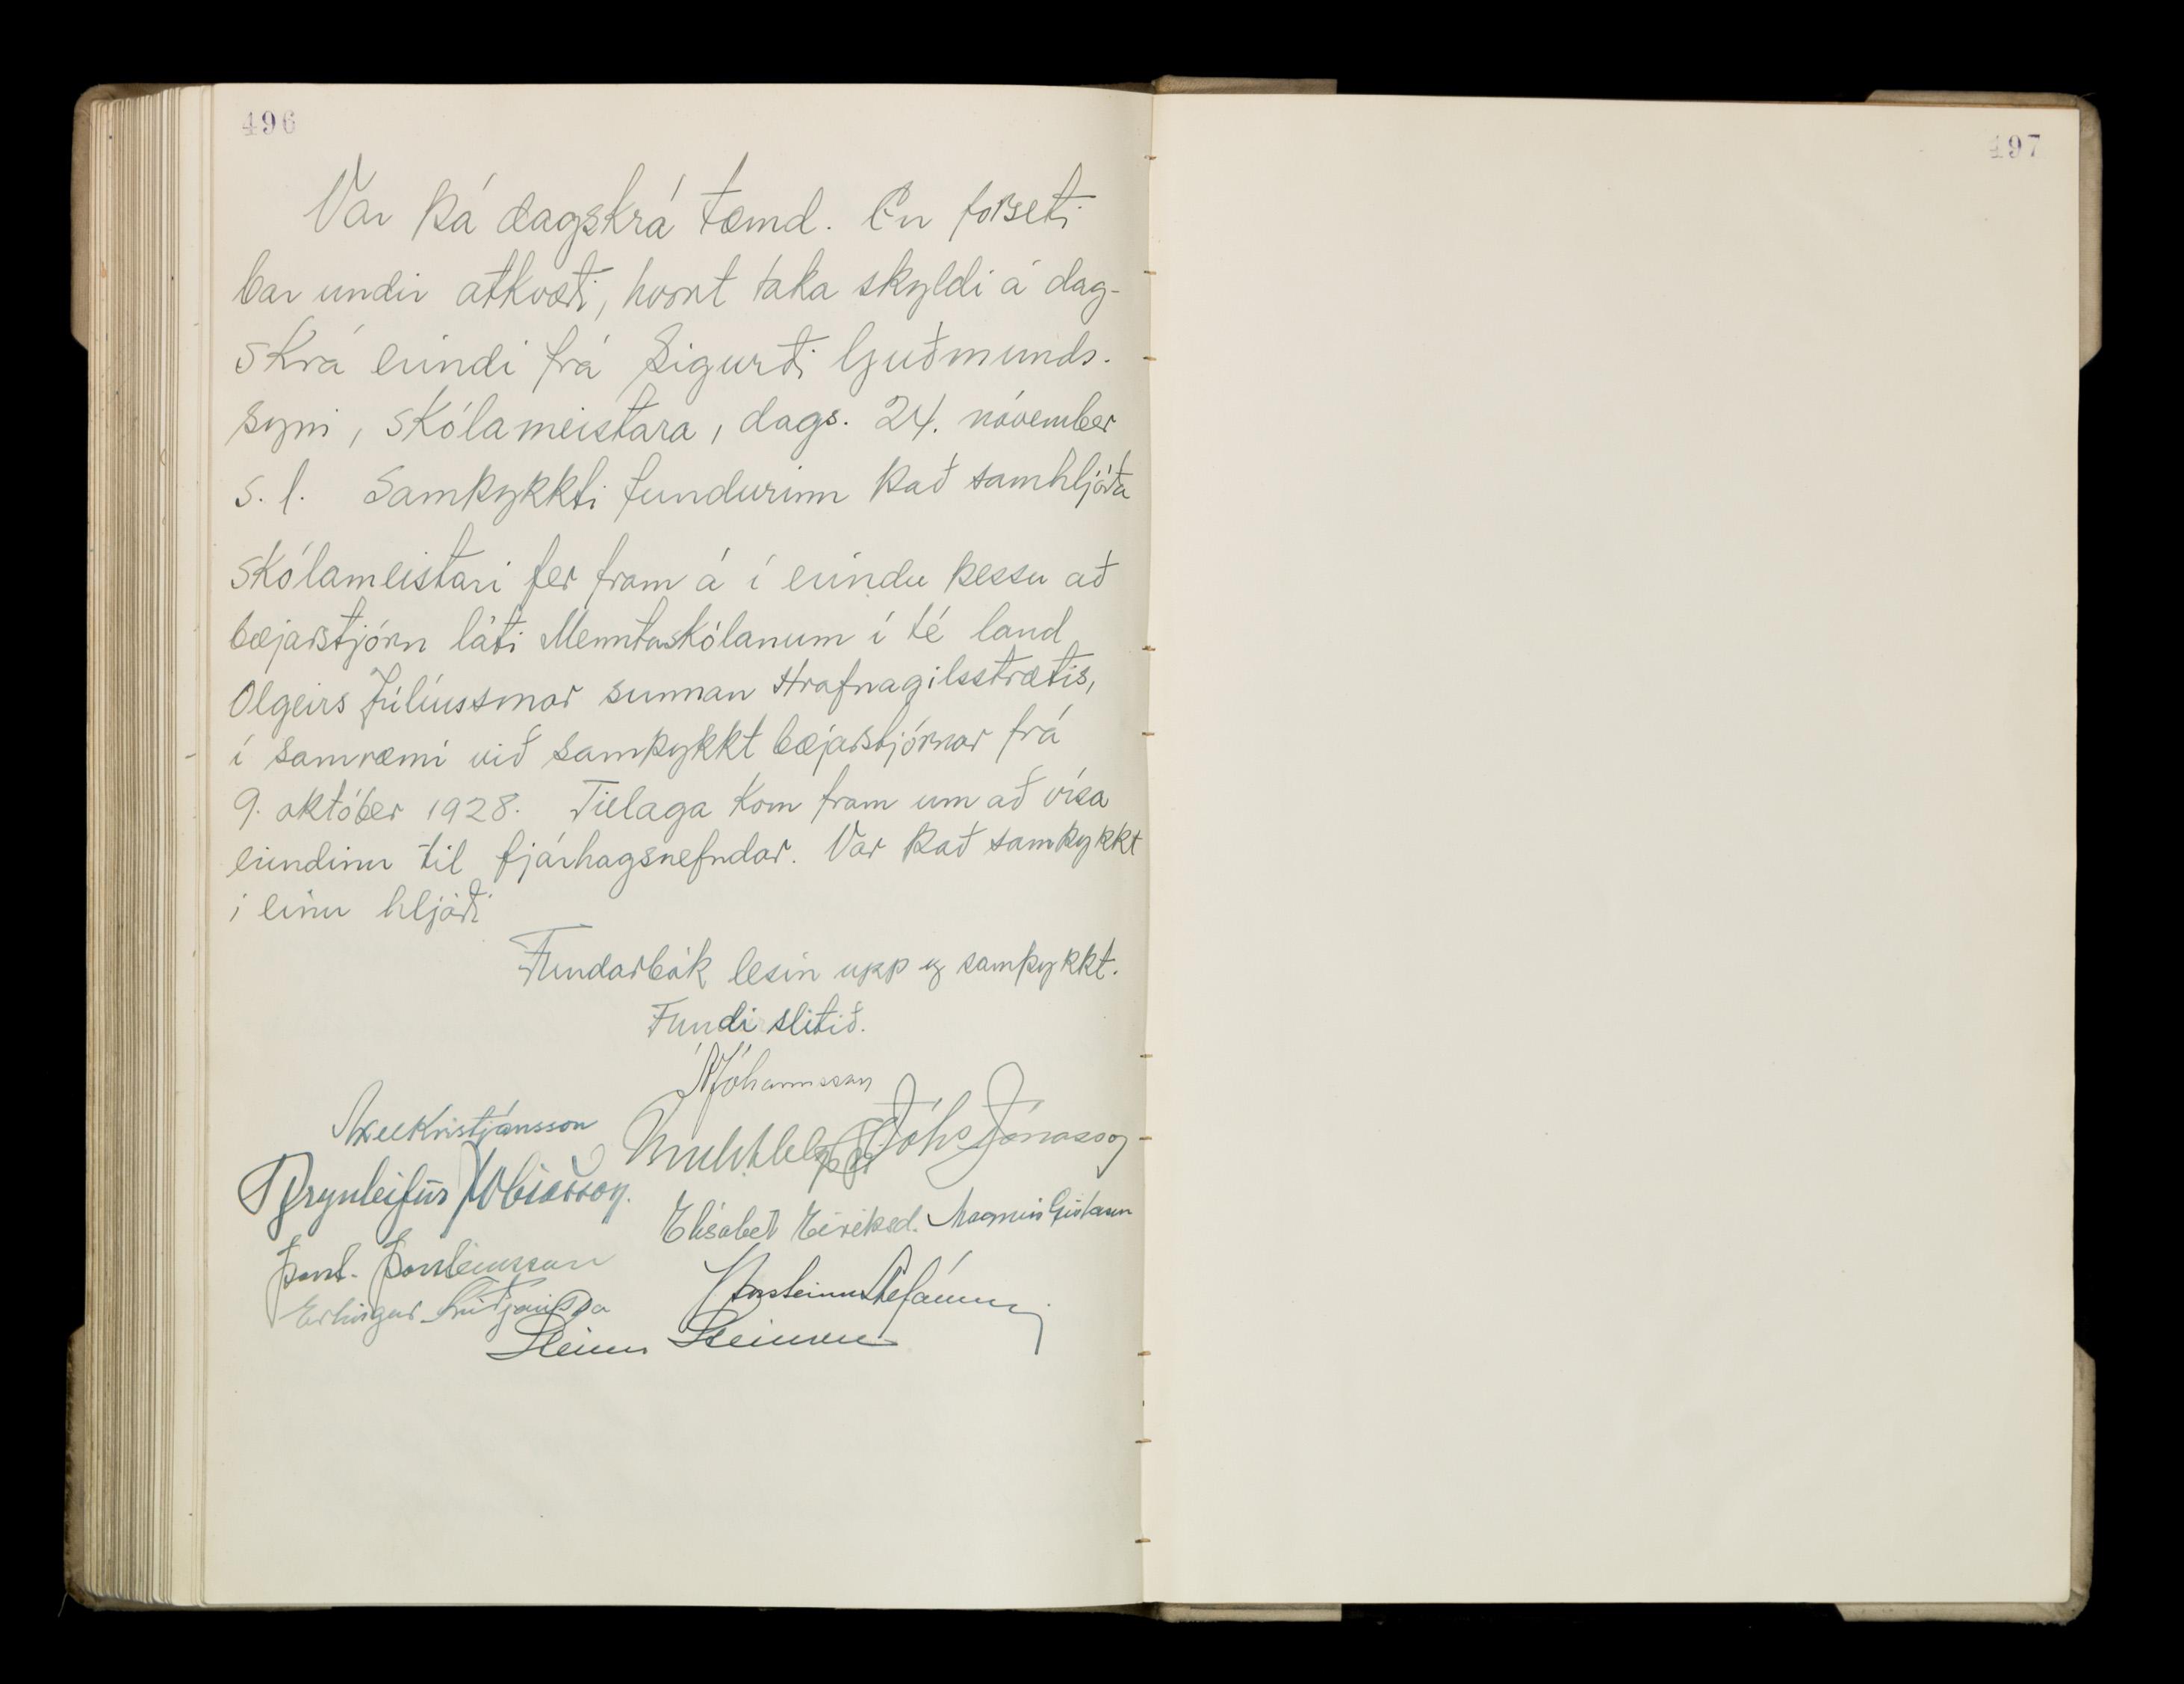 496
Var þá dagskrá tæmd. En forseti
bar undir atkvæði, hvort taka skyldi á dag-
skrá erindi frá Sigurði Guðmunds-
syni, skólameistara, dags. 24. nóvember
s.l. Samþykkti fundurinn það samhljóða
Skólameistari fer fram á í erindu þessu að
bæjarstjórn láti Menntaskólanum í té land
Olgeirs Júlíussonar sunnan Hrafnagilsstrætis,
í samræmi við samþykkt bæjarstjórnar frá
9. október 1928. Tillaga kom fram um að vísa
erindinu til fjárhagsnefndar. Var það samþykkt
í einu hljóði
Fundarbók lesin upp og samþykkt.
Fundi slitið.
Jóhannsson
Axel Kristjánsson
Jóhs Jónasson
Brynleifur Tobiasson.
Elísabet Eiríksd. Magnús Gíslason
Þorst. Þorsteinsson
Þorsteinn Stefánsson
Erlingur Friðjónsson
Steinn Steinsen
497